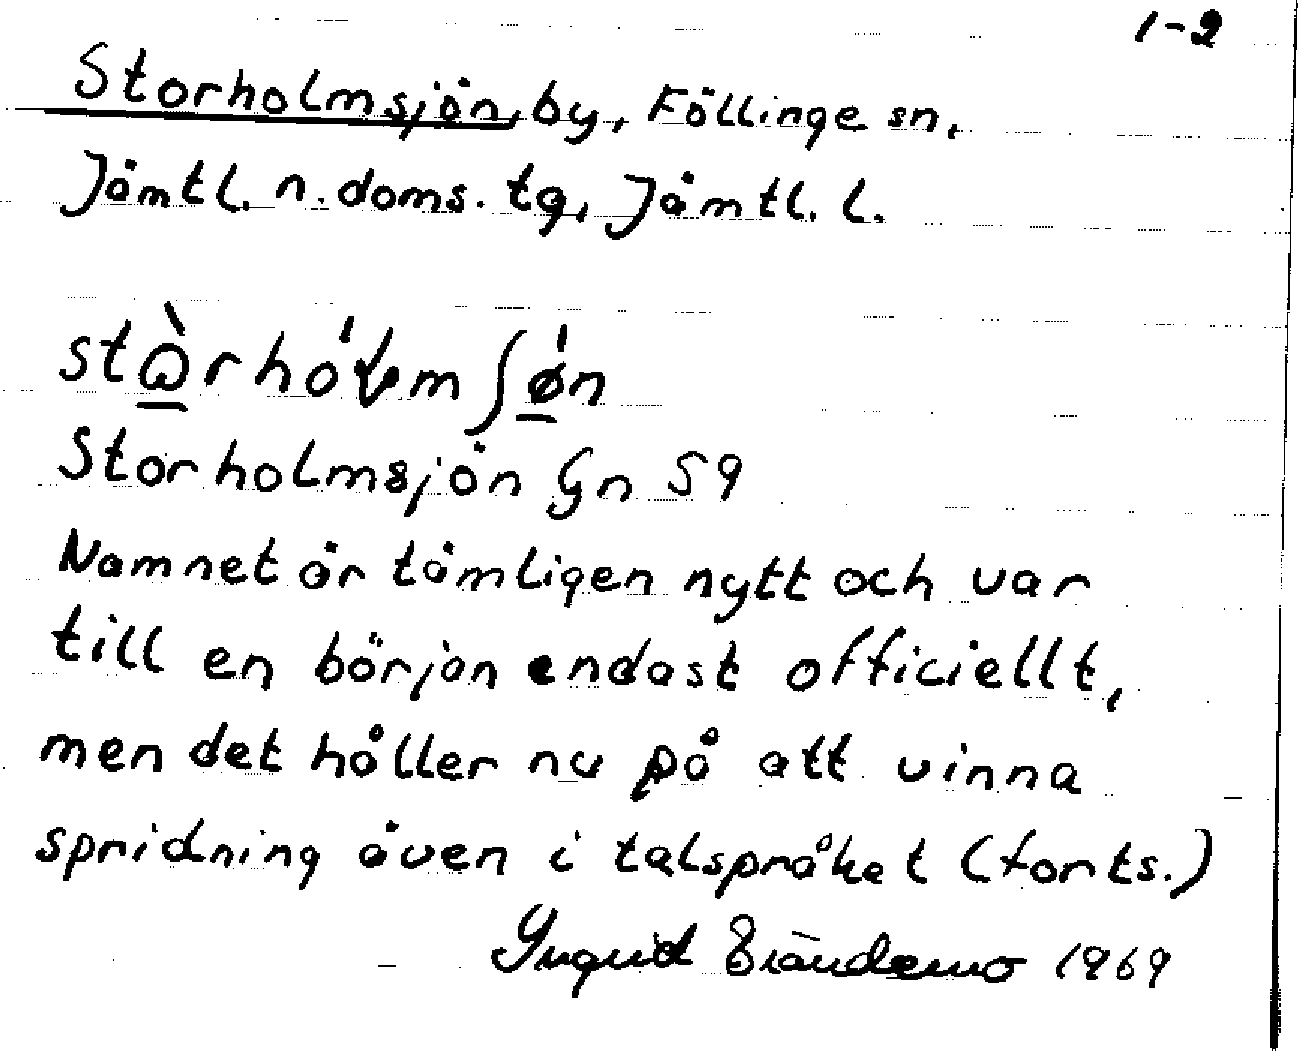 1-2
Storholmsjön, by, Föllinge sn,
Jämtl. n. doms. tg, Jämtl. l.
Storholmsjön Gn 59
Namnet är tämligen nytt och var
till en början endast officiellt,
men det håller nu på att vinna
spridning även i talspråket (forts.)
Yngrid 1969